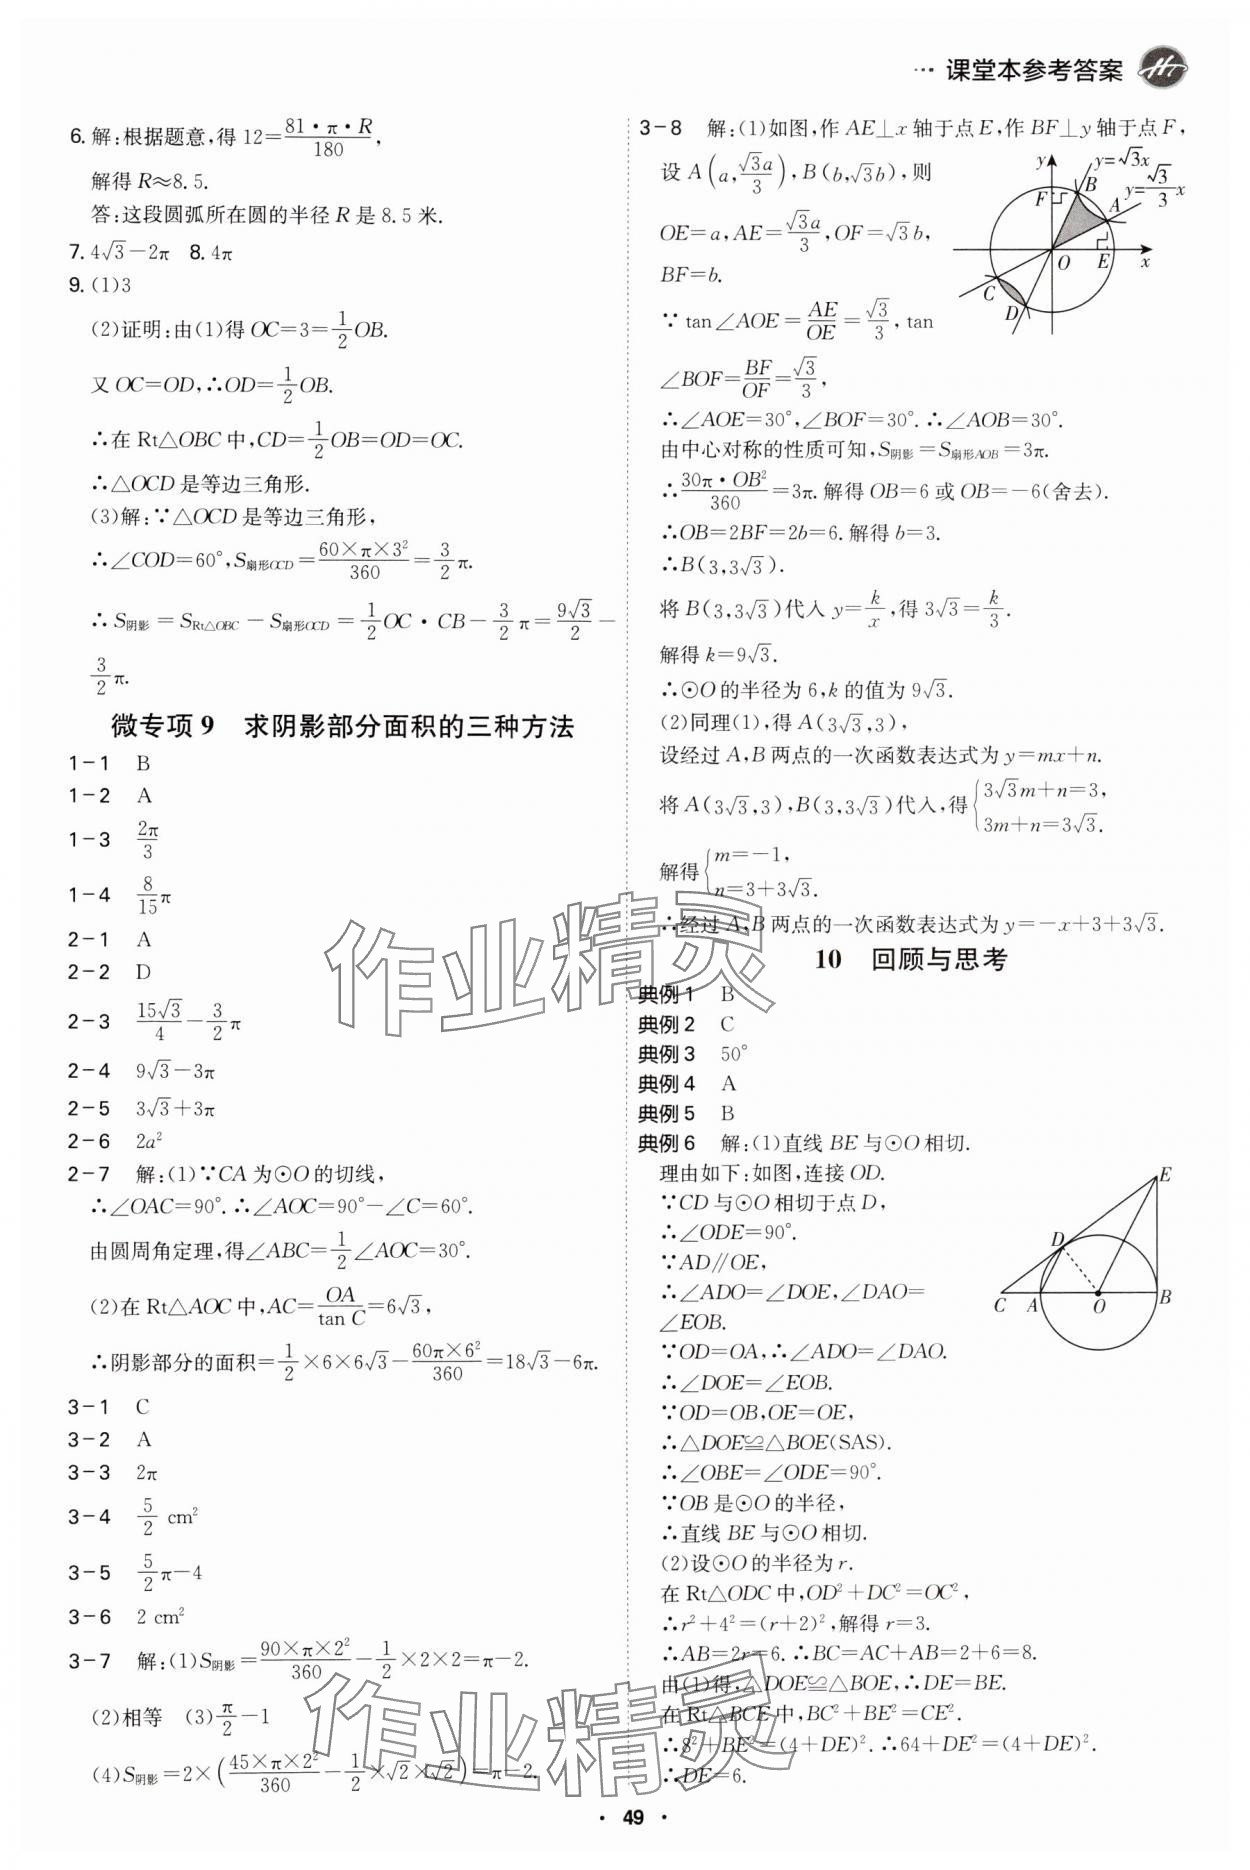 ··· 课堂本参考答案
6. 解:根据题意,得 12=81·π·R/180,
解得 R≈8.5.
答:这段圆弧所在圆的半径 R 是 8.5 米.
7. 4√3-2π 8. 4π
9. (1)3
(2)证明:由(1)得 OC=3=1/2OB.
又 OC=OD,∴OD=1/2OB.
∴在 Rt△OBC 中,CD=1/2OB=OD=OC.
∴△OCD 是等边三角形.
(3)解:∵△OCD 是等边三角形,
∴∠COD=60°,S扇形OCD=60×π×3²/360=3/2π.
∴S阴影=SRt△OBC-S扇形OCD=1/2OC·CB-3/2π=9√3/2-
3/2π.
微专项 9 求阴影部分面积的三种方法
1-1 B
1-2 A
1-3 2π/3
1-4 8/15π
2-1 A
2-2 D
2-3 15√3/4-3/2π
2-4 9√3-3π
2-5 3√3+3π
2-6 2a²
2-7 解:(1)∵CA 为⊙O 的切线,
∴∠OAC=90°.∴∠AOC=90°-∠C=60°.
由圆周角定理,得∠ABC=1/2∠AOC=30°.
(2)在 Rt△AOC 中,AC=OA/tan C=6√3,
∴阴影部分的面积=1/2×6×6√3-60π×6²/360=18√3-6π.
3-1 C
3-2 A
3-3 2π
3-4 5/2 cm²
3-5 5/2π-4
3-6 2 cm²
3-7 解:(1)S阴影=90×π×2²/360-1/2×2×2=π-2.
(2)相等 (3)π/2-1
(4)S阴影=2×(45×π×2²/360-1/2×√2×√2)=π-2.
3-8 解:(1)如图,作 AE⊥x 轴于点 E,作 BF⊥y 轴于点 F,
设 A(a,√3a/3),B(b,√3b),则
OE=a,AE=√3a/3,OF=√3b,
BF=b.
∵tan∠AOE=AE/OE=√3/3,tan
∠BOF=BF/OF=√3/3,
y y=√3x
B y=√3/3x
F A
O E x
C
D
∴∠AOE=30°,∠BOF=30°.∴∠AOB=30°.
由中心对称的性质可知,S阴影=S扇形AOB=3π.
∴30π·OB²/360=3π.解得 OB=6 或 OB=-6(舍去).
∴OB=2BF=2b=6.解得 b=3.
∴B(3,3√3).
将 B(3,3√3)代入 y=k/x,得 3√3=k/3.
解得 k=9√3.
∴⊙O 的半径为 6,k 的值为 9√3.
(2)同理(1),得 A(3√3,3),
设经过 A,B 两点的一次函数表达式为 y=mx+n.
将 A(3√3,3),B(3,3√3)代入,得{3√3m+n=3,
3m+n=3√3.
解得{m=-1,
n=3+3√3.
∴经过 A,B 两点的一次函数表达式为 y=-x+3+3√3.
10 回顾与思考
典例 1 B
典例 2 C
典例 3 50°
典例 4 A
典例 5 B
典例 6 解:(1)直线 BE 与⊙O 相切.
理由如下:如图,连接 OD.
∵CD 与⊙O 相切于点 D,
∴∠ODE=90°.
∵AD∥OE,
∴∠ADO=∠DOE,∠DAO=
∠EOB.
∵OD=OA,∴∠ADO=∠DAO.
∴∠DOE=∠EOB.
∵OD=OB,OE=OE,
∴△DOE≌△BOE(SAS).
∴∠OBE=∠ODE=90°.
∵OB 是⊙O 的半径,
∴直线 BE 与⊙O 相切.
E
D
C A O B
(2)设⊙O 的半径为 r.
在 Rt△ODC 中,OD²+DC²=OC²,
∴r²+4²=(r+2)²,解得 r=3.
∴AB=2r=6.∴BC=AC+AB=2+6=8.
由(1)得,△DOE≌△BOE,∴DE=BE.
在 Rt△BCE 中,BC²+BE²=CE²,
∴8²+BE²=(4+DE)².∴64+DE²=(4+DE)².
∴DE=6.
作业精灵
作业精灵
· 49 ·